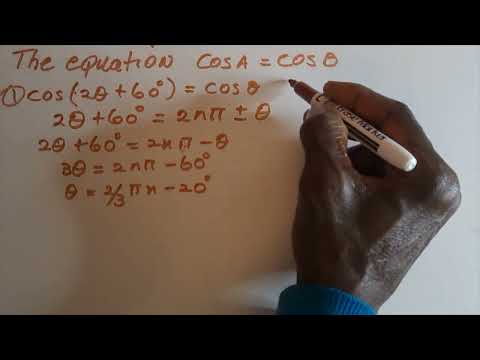 The equation COSA = COS θ
① cos(2θ+60°) = cosθ
2θ+60° = 2nπ ± θ
2θ+60° = 2nπ - θ
3θ = 2nπ - 60°
θ = 2/3 πn - 20°